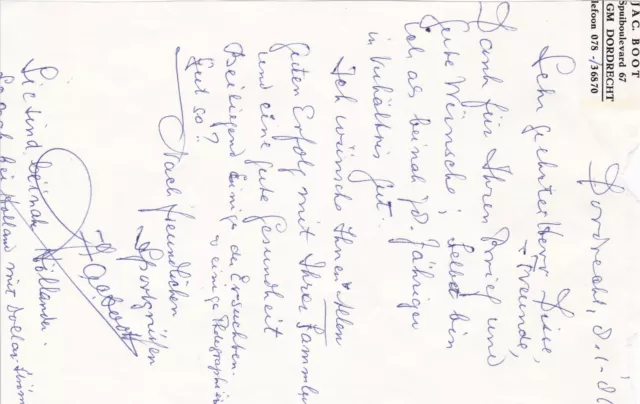 JAC. BOOT
Spuiboulevard 67
GM DORDRECHT
lefoon 078 - /36870
Dordrecht, 8.1-8
Sehr geehrter Herr
+ Freunde,
Dank für Ihren Brief und
gute Wünsche, selbst bin
Ich als beinah 78. Jähriger
in Verhältnis gut.
Ich wünsche Ihnen + Allen
guten Erfolg mit Ihrer Sammlun
und eine gute Gesundheit
Beiliegend einige der Ersuchten
+ einige Photographie
Gut so!?
Nach freundlichen
Sportgrüßen
JacBoot
Sie sind beinah Holländer.
bei Holland mit